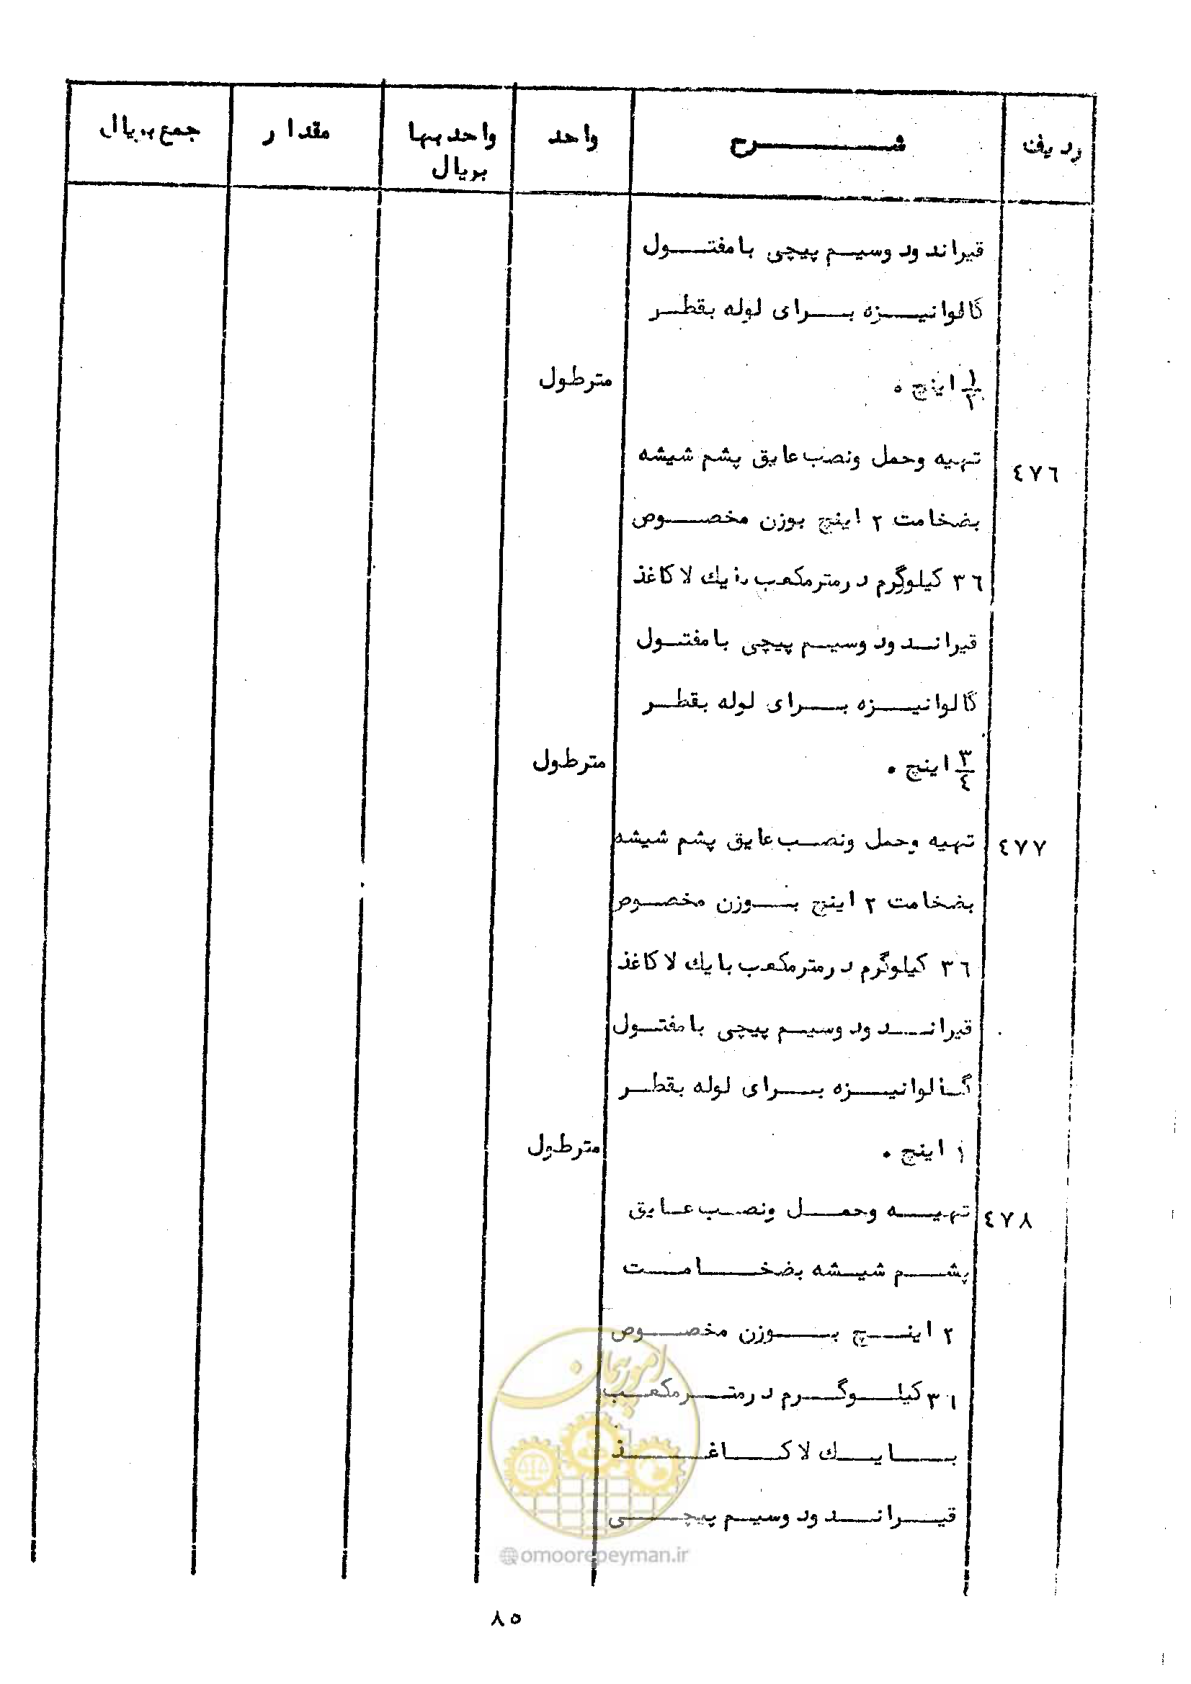 ردیف	شرح	واحد	واحد بها بریال	مقدار	جمع بریال
قیراندود وسیم پیچی با مفتول
گالوانیزه برای لوله بقطر
۱/۲ اینچ . مترطول
٤٧٦ تهیه وحمل ونصب عایق پشم شیشه
بضخامت ۲ اینچ بوزن مخصوص
۳٦ کیلوگرم در مترمکعب با یك لا کاغذ
قیراندود وسیم پیچی با مفتول
گالوانیزه برای لوله بقطر
۳/٤ اینچ . مترطول
٤٧٧ تهیه وحمل ونصب عایق پشم شیشه
بضخامت ۲ اینچ بوزن مخصوص
۳٦ کیلوگرم در مترمکعب با یك لا کاغذ
قیراندود وسیم پیچی با مفتول
گالوانیزه برای لوله بقطر
۱ اینچ . مترطول
٤٧٨ تهیه وحمل ونصب عایق
پشم شیشه بضخامت
۲ اینچ بوزن مخصوص
۳٦ کیلوگرم در مترمکعب
با یك لا کاغذ
قیراندود وسیم پیچی
امور پیمان
@omoorepeyman.ir
۸۵